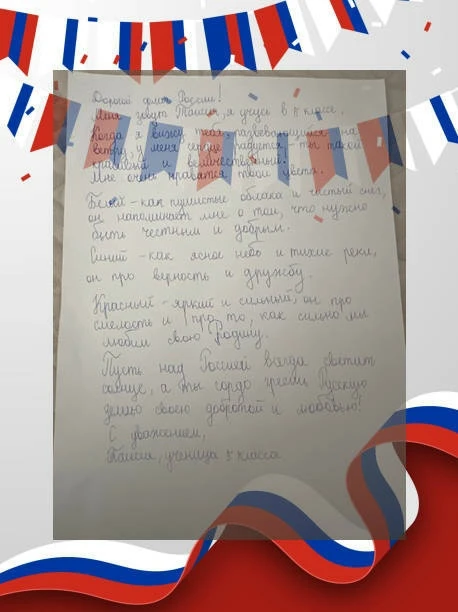 Дорогой флаг России!
Меня зовут Таисия, я учусь в 5 классе.
Когда я вижу, как развевающийся на
ветру, у меня сердце радуется - ты такой
красивый и величественный!
Мне очень нравятся твои цвета.
Белый - как пушистые облака и чистый снег,
он напоминает мне о том, что нужно
быть честным и добрым.
Синий - как ясное небо и тихие реки,
он про верность и дружбу.
Красный - яркий и сильный, он про
смелость и про то, как сильно мы
любим свою Родину.
Пусть над Россией всегда светит
солнце, а ты гордо греешь Русскую
землю своею добротой и любовью!
С уважением,
Таисия, ученица 5 класса